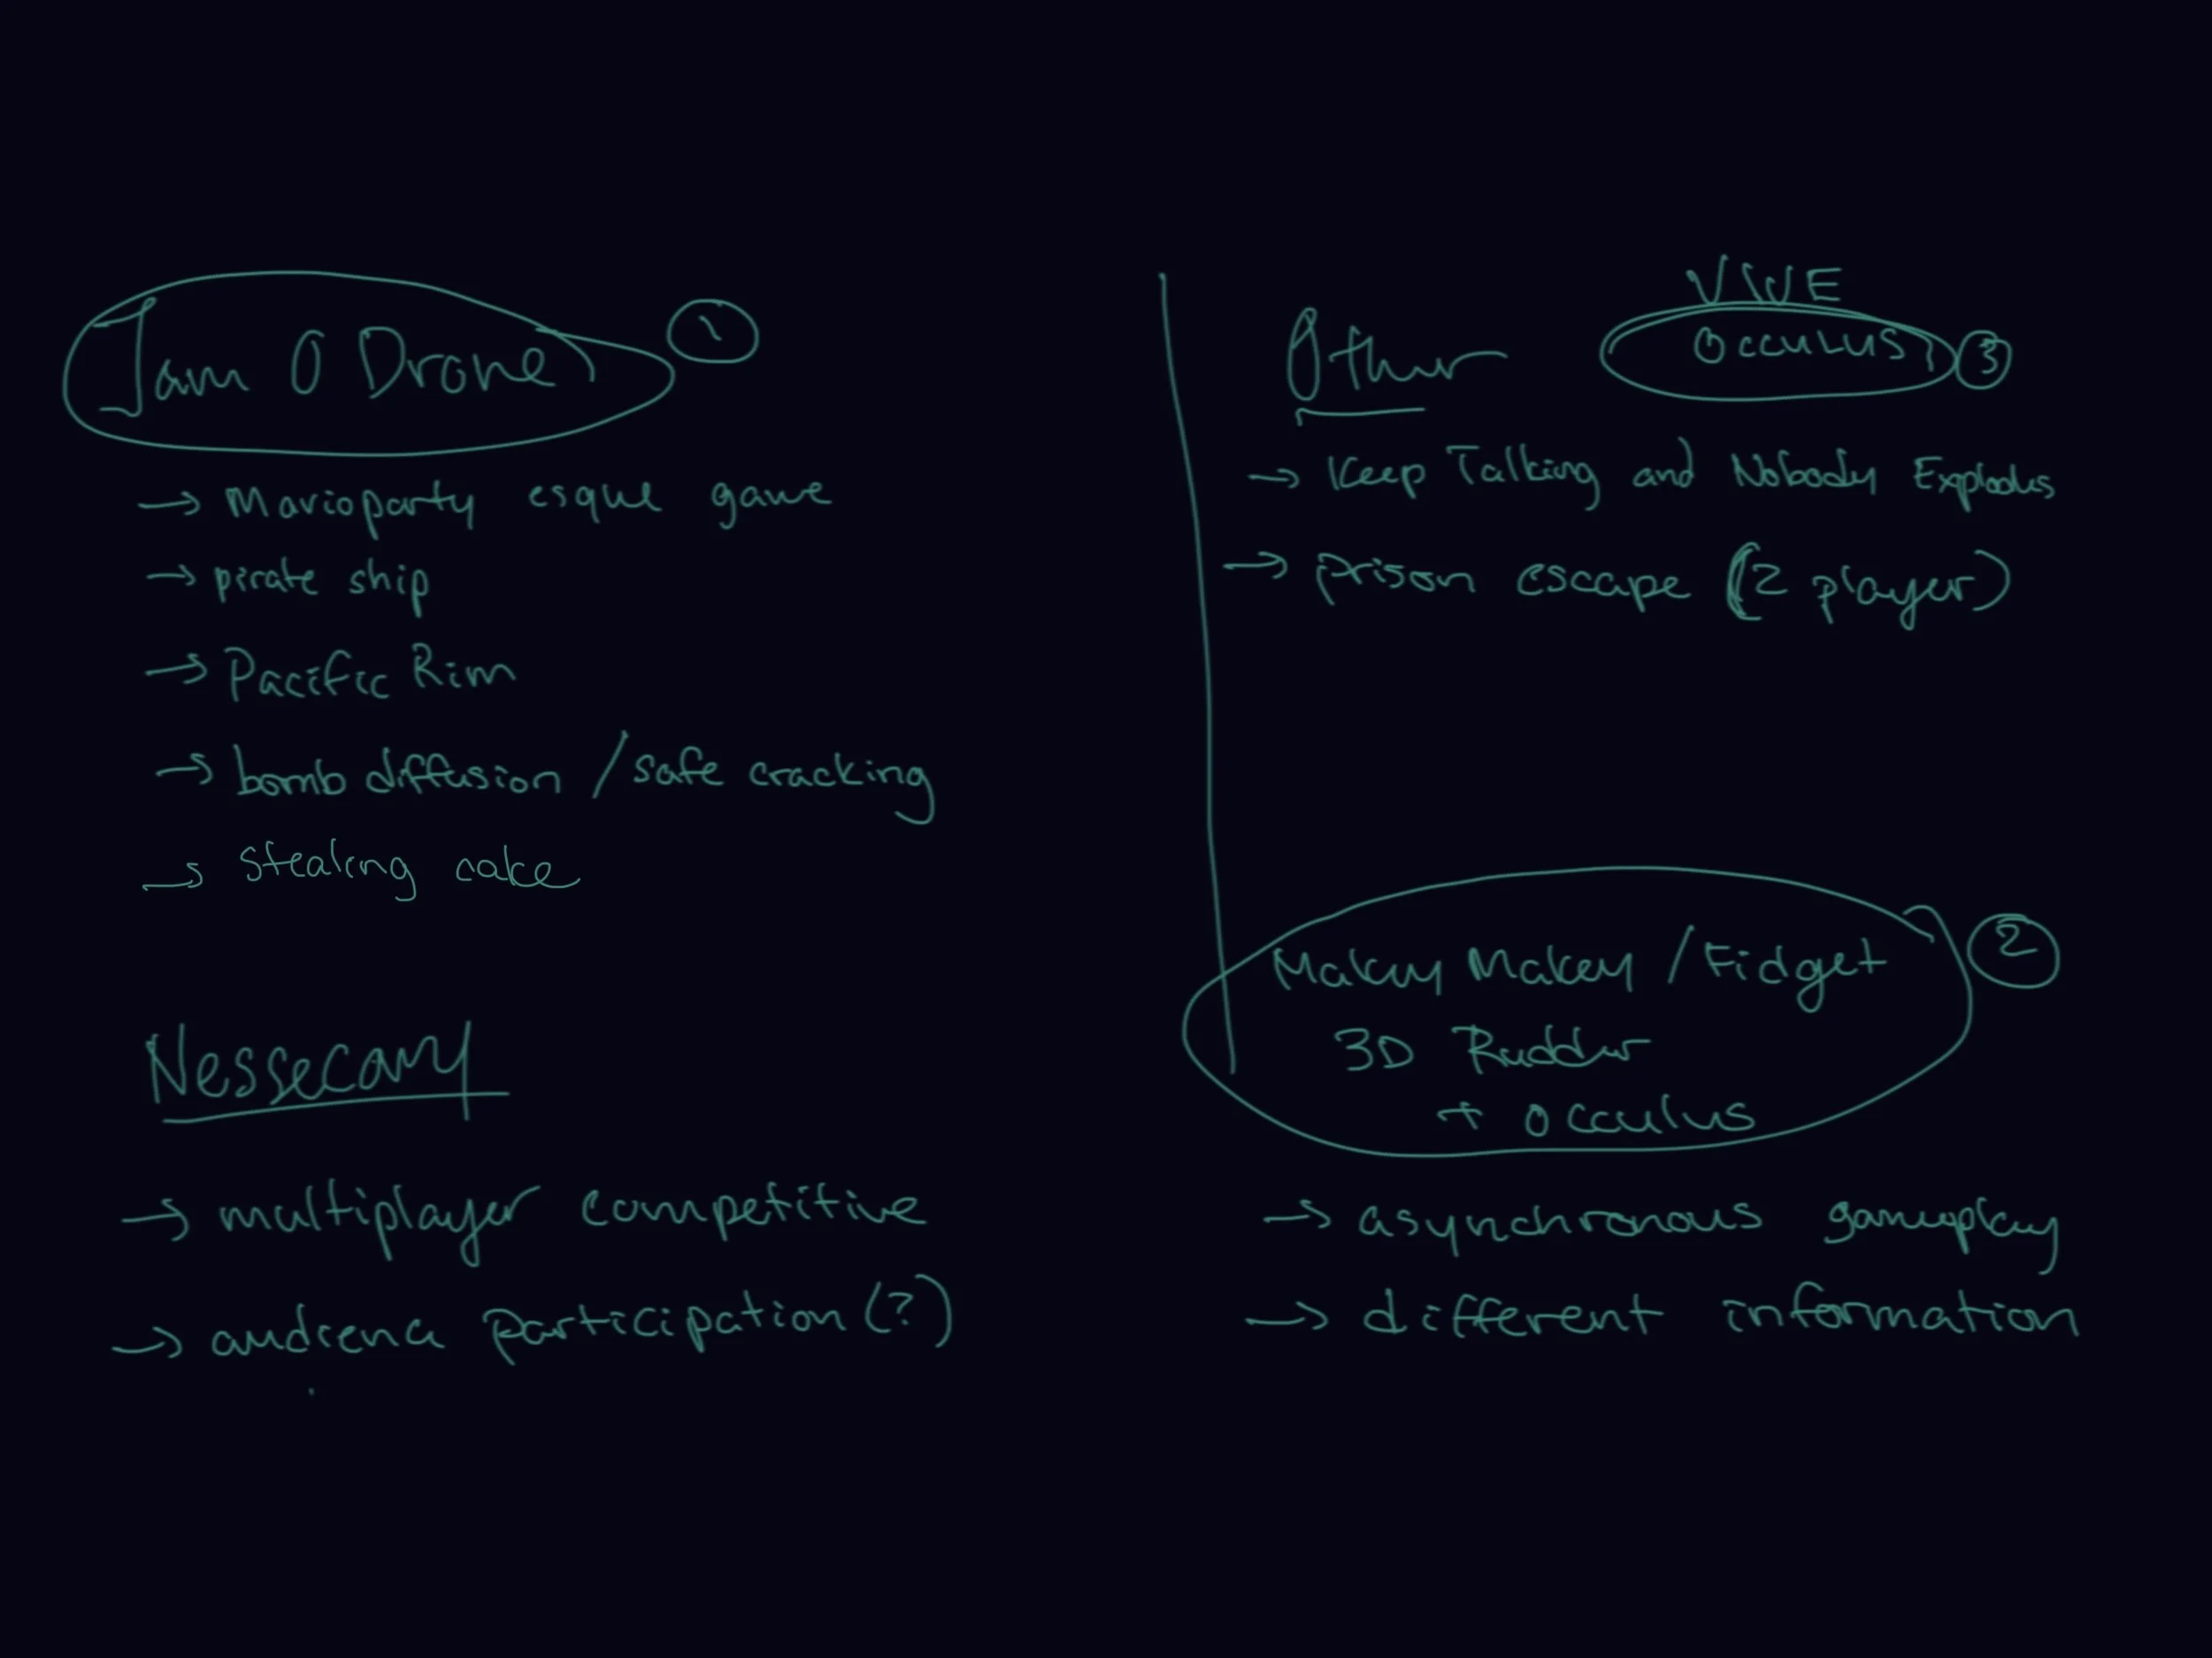 Jam O Drone 1
→ Marioparty esque game
→ pirate ship
→ Pacific Rim
→ bomb diffusion / safe cracking
→ Stealing cake
Nessecary
→ multiplayer competitive
→ audience participation (?)
Other
VIVE
Occulus 3
→ Keep Talking and Nobody Explodes
→ prison escape (2 player)
Makey Makey / Fidget 2
3D Rudder
+ Occulus
→ asynchronous gameplay
→ different information